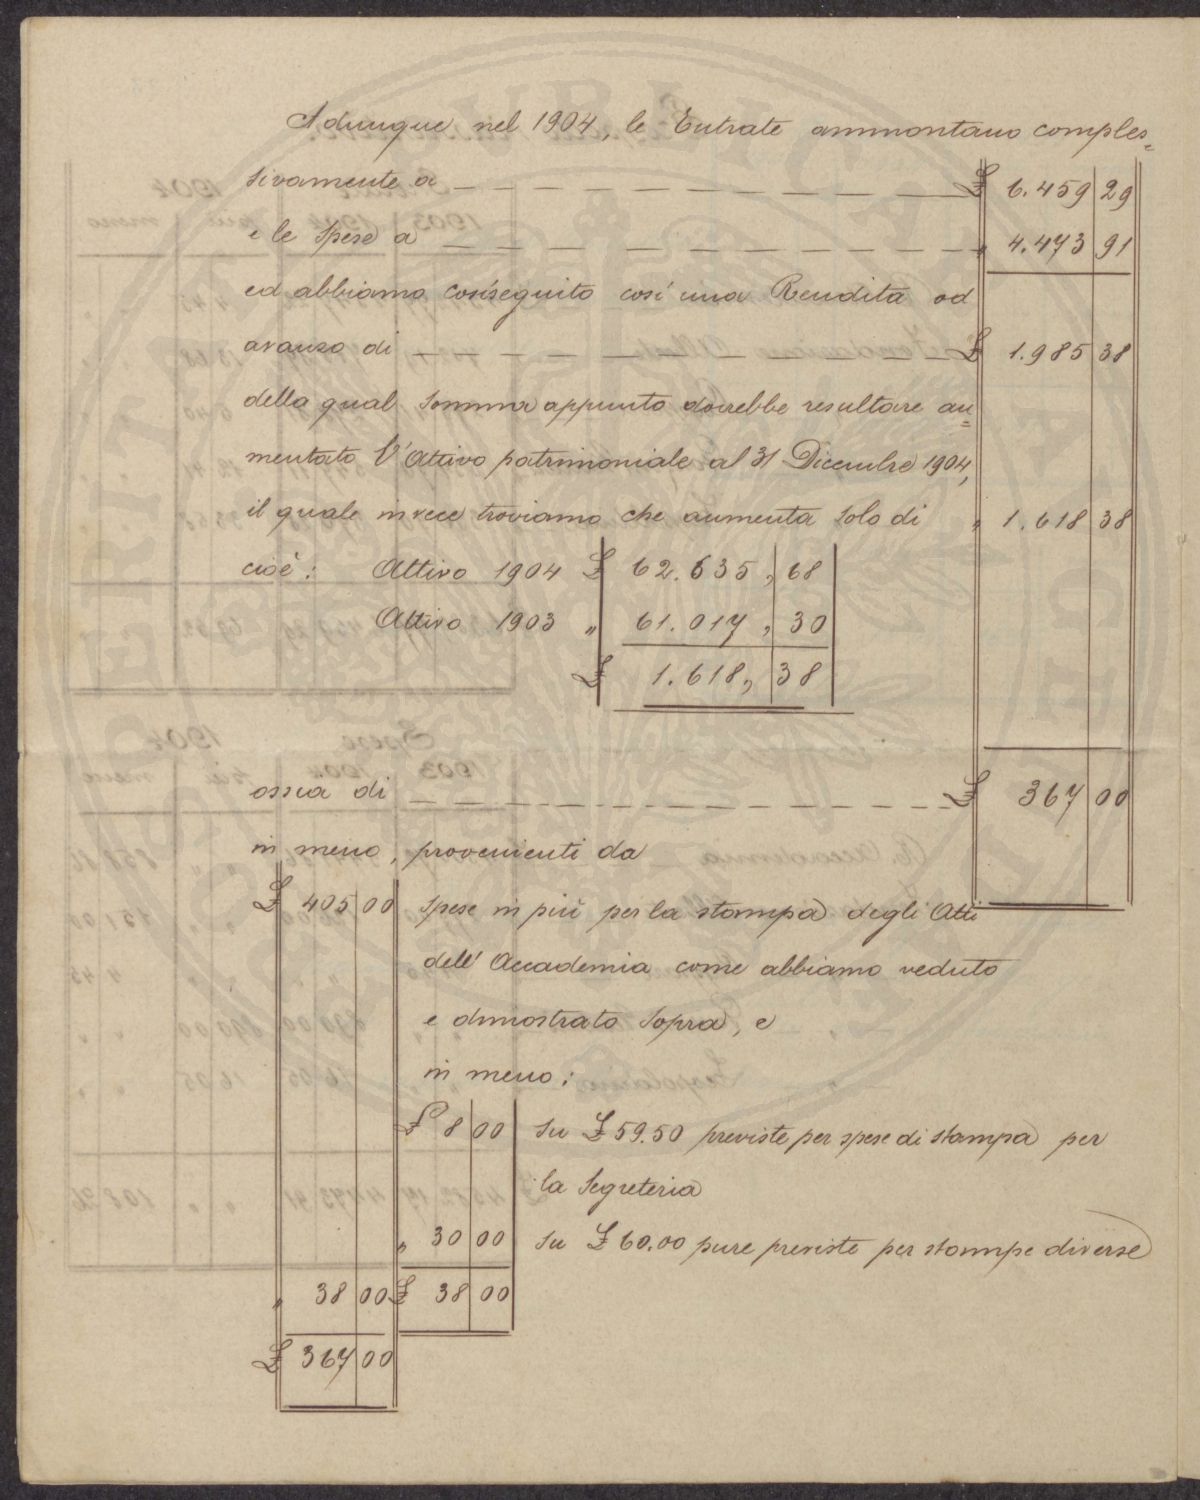 Adunque nel 1904, le Entrate ammontano comples=
sivamente a _ _ _ _ _ _ _ _ _ _ £ 6.459 29
e le Spese a _ _ _ _ _ _ _ _ _ _ „ 4.473 91
ed abbiamo conseguito così una Rendita od
avanzo di _ _ _ _ _ _ _ _ _ _ £ 1.985 38
della qual somma appunto dovrebbe resultare au=
mentato l'Attivo patrimoniale al 31 Dicembre 1904,
il quale invece troviamo che aumenta solo di „ 1.618 38
cioè: Attivo 1904 £ 62.635, 68
Attivo 1903 „ 61.017, 30
£ 1.618, 38
ossia di _ _ _ _ _ _ _ _ _ _ £ 367 00
in meno, provenienti da
£ 405 00 spese in più per la stampa degli Atti
dell'Accademia come abbiamo veduto
e dimostrato sopra, e
in meno:
£ 8 00 su £ 59.50 previste per spese di stampa per
la Segreteria
„ 30 00 su £ 60.00 pure previste per stampe diverse
„ 38 00 £ 38 00
£ 367 00